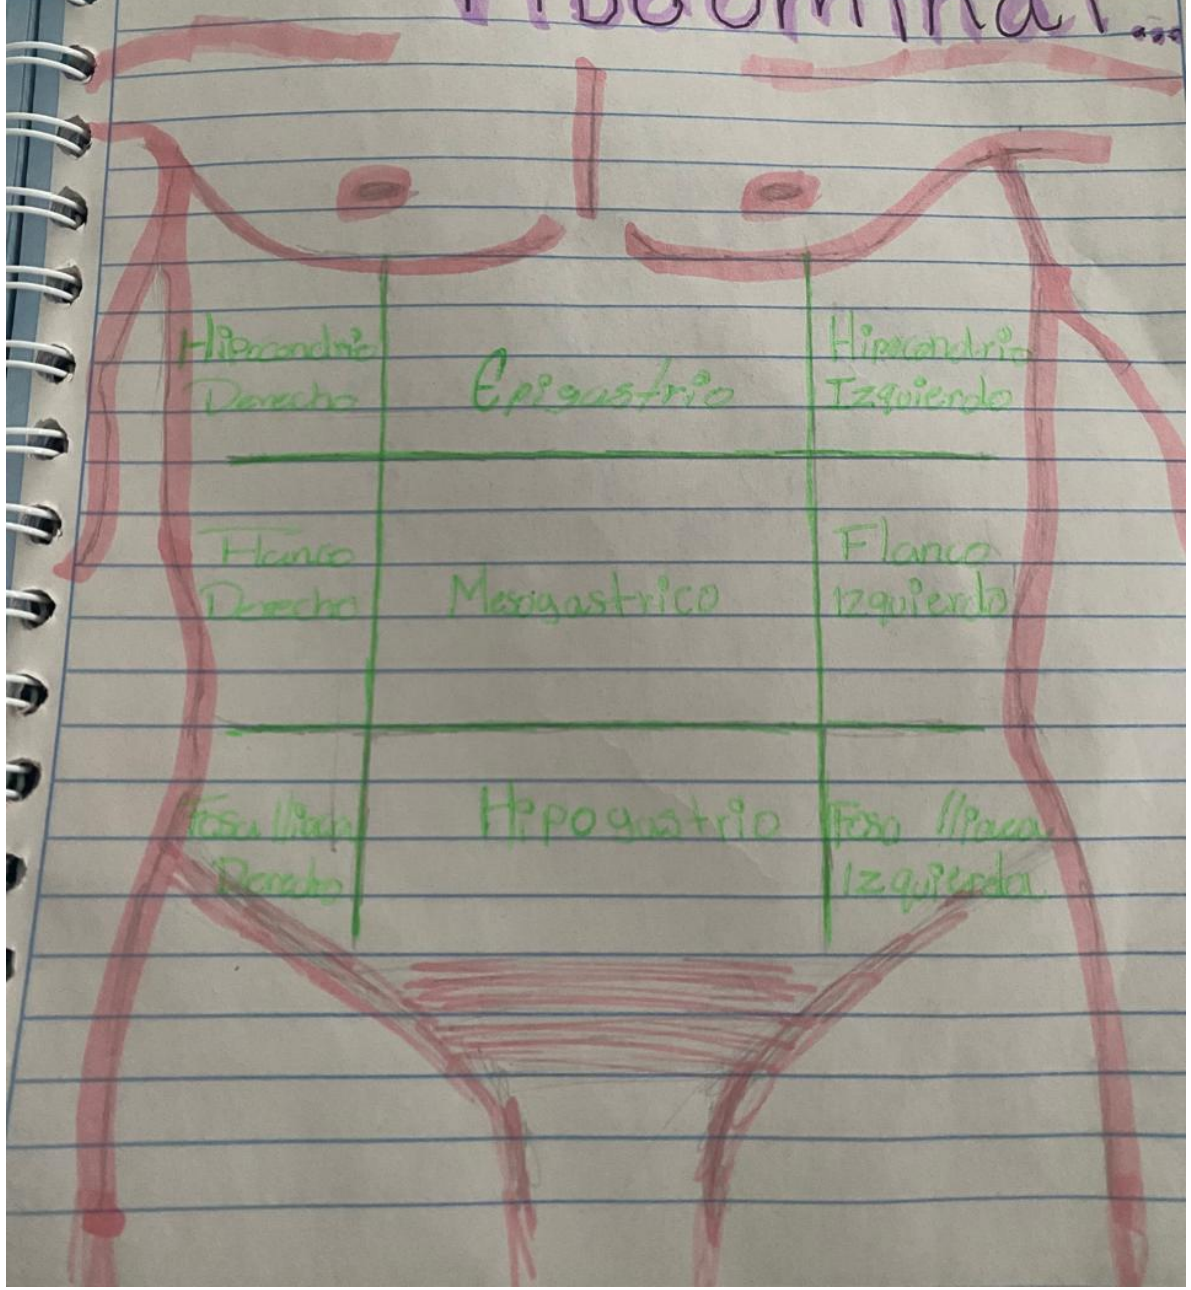 Abdominal...
Hipocondrio
Derecho
Epigastrio
Hipocondrio
Izquierdo
Flanco
Derecho
Mesogastrico
Flanco
Izquierdo
Fosa Iliaca
Derecho
Hipogastrio
Fosa Iliaca
Izquierda